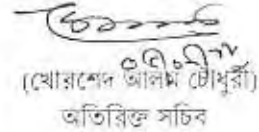 (খোরশেদ আলম চৌধুরী)
অতিরিক্ত সচিব